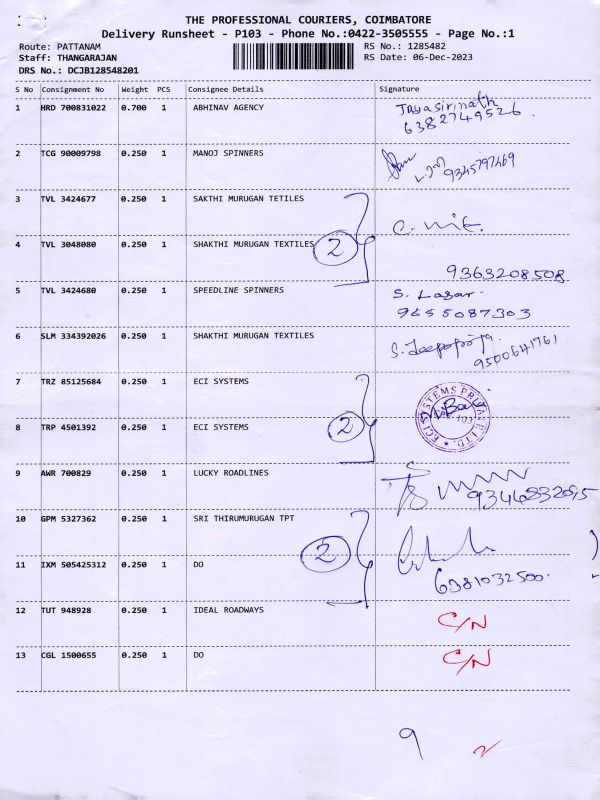 THE PROFESSIONAL COURIERS, COIMBATORE
Delivery Runsheet - P103 - Phone No.:0422-3505555 - Page No.:1
Route: PATTANAM RS No.: 1285482
Staff: THANGARAJAN RS Date: 06-Dec-2023
DRS No.: DCJB128548201
S No Consignment No Weight PCS Consignee Details Signature
1 HRD 700831022 0.700 1 ABHINAV AGENCY Jayasirinath
6382749526
2 TCG 90009798 0.250 1 MANOJ SPINNERS
9345797469
3 TVL 3424677 0.250 1 SAKTHI MURUGAN TETILES
4 TVL 3048080 0.250 1 SHAKTHI MURUGAN TEXTILES 2
9363208508
5 TVL 3424680 0.250 1 SPEEDLINE SPINNERS S. Lagar.
9655087303
6 SLM 334392026 0.250 1 SHAKTHI MURUGAN TEXTILES
9500641761
7 TRZ 85125684 0.250 1 ECI SYSTEMS
ECI SYSTEMS PRIVATE LTD.
8 TRP 4501392 0.250 1 ECI SYSTEMS 2
9 AWR 700829 0.250 1 LUCKY ROADLINES
10 GPM 5327362 0.250 1 SRI THIRUMURUGAN TPT
2
11 IXM 505425312 0.250 1 DO
6381032500.
12 TUT 948928 0.250 1 IDEAL ROADWAYS C/N
13 CGL 1500655 0.250 1 DO C/N
9 2